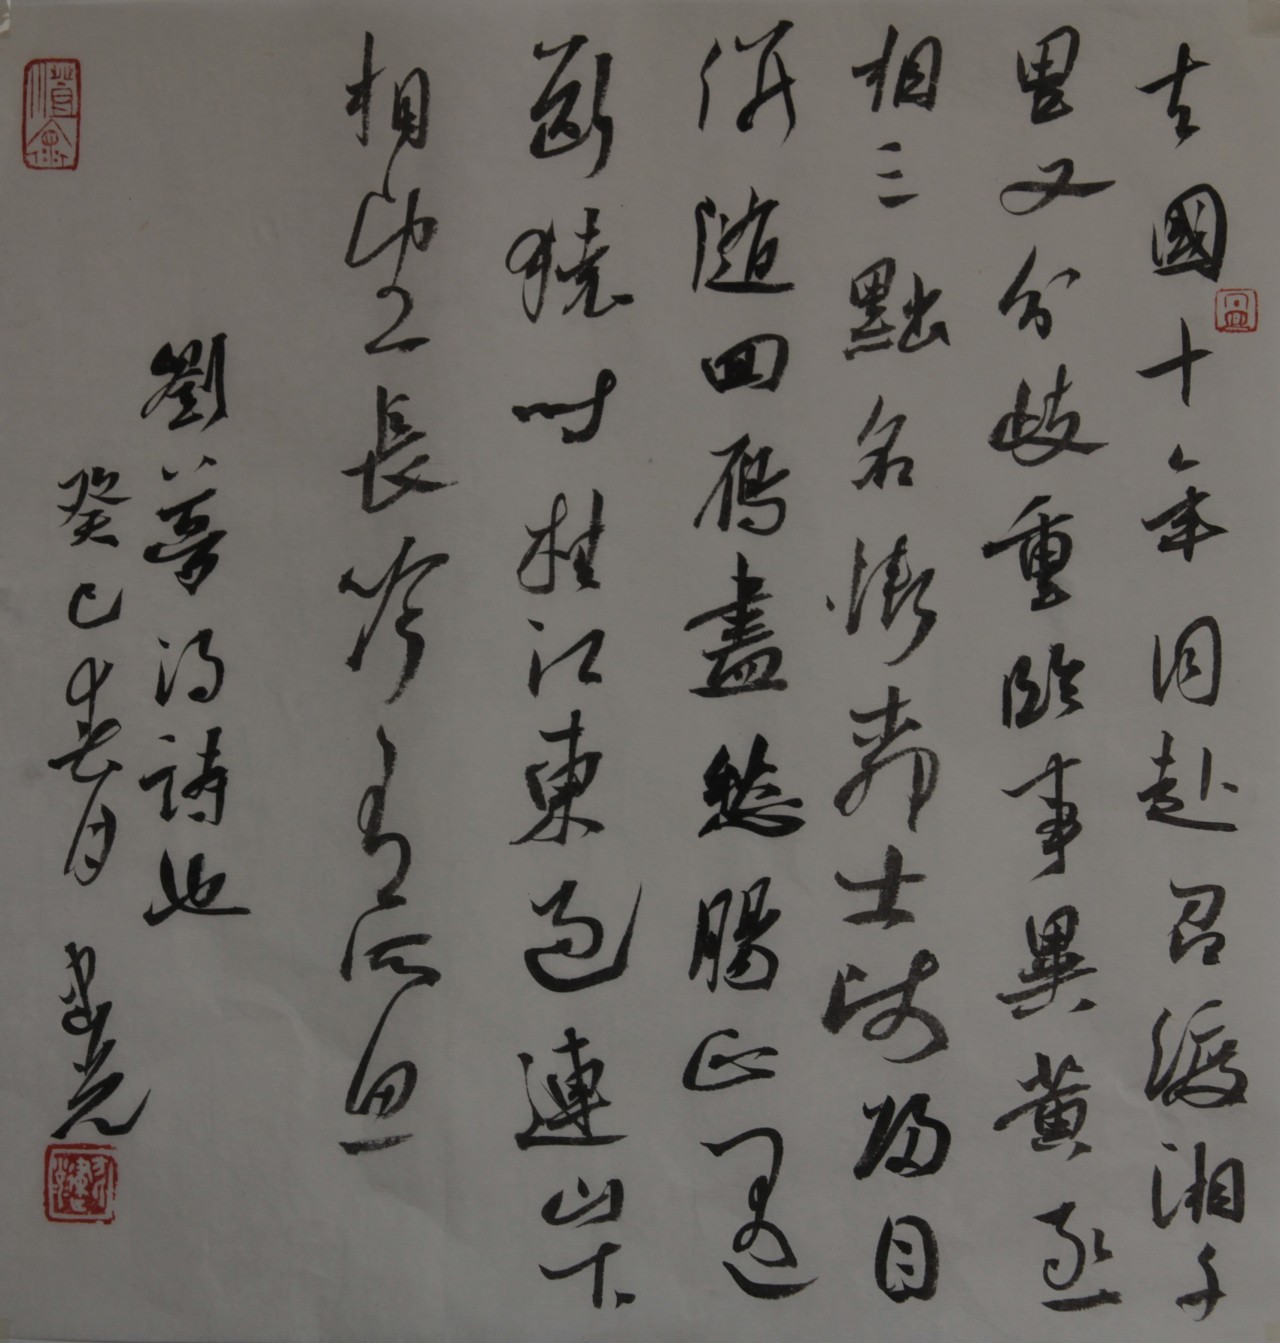 去國十年同赴召渡湘千
里又分歧重臨事異黃丞
相三黜名慚柳士師歸目
併隨回雁盡愁腸正遇
斷猿時桂江東過連山下
相望長吟有所思
劉夢得詩也
癸巳春月